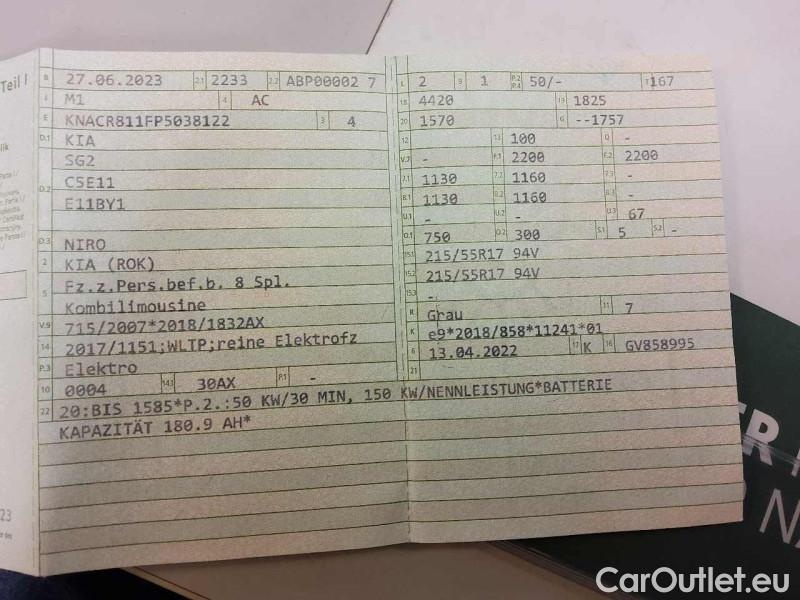 Teil I
B 27.06.2023 2.1 2233 2.2 ABP00002 7
J M1 4 AC
E KNACR811FP5038122 3 4
D.1 KIA
D.2 SG2
C5E11
E11BY1
D.3 NIRO
2 KIA (ROK)
5 Fz.z.Pers.bef.b. 8 Spl.
Kombilimousine
V.9 715/2007*2018/1832AX
14 2017/1151;WLTP;reine Elektrofz
P.3 Elektro
10 0004 14.1 30AX P.1 -
22 20:BIS 1585*P.2.:50 KW/30 MIN, 150 KW/NENNLEISTUNG*BATTERIE
KAPAZITÄT 180.9 AH*
L 2 9 1 P.2 P.4 50/- T 167
18 4420 19 1825
20 1570 G --1757
12 - 13 100 Q -
V.7 - F.1 2200 F.2 2200
7.1 1130 7.2 1160 7.3 -
8.1 1130 8.2 1160 8.3 -
U.1 - U.2 - U.3 67
O.1 750 O.2 300 S.1 5 S.2 -
15.1 215/55R17 94V
15.2 215/55R17 94V
15.3 -
R Grau 11 7
K e9*2018/858*11241*01
6 13.04.2022 17 K 16 GV858995
21
23
CarOutlet.eu